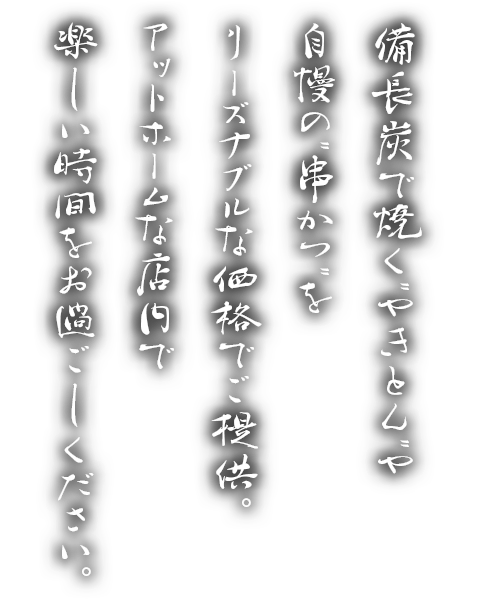 備長炭で焼く〝やきとん〟や
自慢の〝串かつ〟を
リーズナブルな価格でご提供。
アットホームな店内で
楽しい時間をお過ごしください。